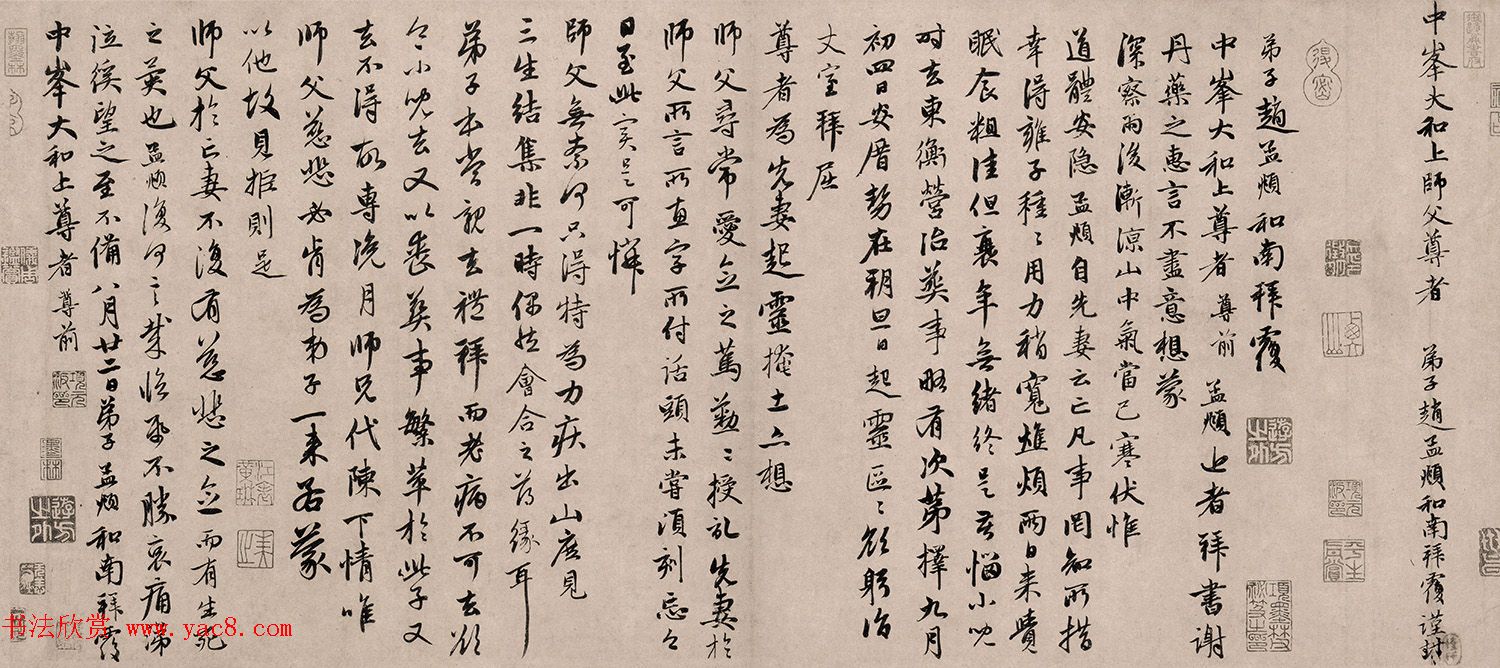 中峯大和上師父尊者 弟子趙孟頫和南拜覆謹封
弟子趙孟頫和南拜覆
中峯大和上尊者尊前 孟頫近者拜書謝
丹藥之惠言不盡意想蒙
深察雨後漸涼山中氣當已寒伏惟
道體安隱孟頫自先妻云亡凡事罔知所措
幸得雍子種々用力稍寬煩兩日來貴
眠食粗佳但衰年無緒終是苦惱小兒
時去東衡營治葬事略有次第擇九月
初四日安厝勢在朔旦日起靈區々欲躬詣
丈室拜屈
尊者為先妻起靈掩土亦想
師父尋常愛念之篤勤々授記先妻於
師父所言所直字所付話頭未嘗頃刻忘之
日至此實是可憐
師父無奈何只得特為力疾出山庶見
三生結集非一時偶然會合之薄緣耳
弟子本當親去禮拜而老病不可去欲
令小兒去又以喪葬事繁萃於此子又
去不得故專浼月師兄代陳下情唯
師父慈悲必肯為弟子一來若蒙
以他故見拒則是
師父於亡妻不復有慈悲之念而有生死
之異也孟頫復何言哉臨紙不勝哀痛涕
泣徯望之至不備八月廿二日弟子孟頫和南拜覆
中峯大和上尊者尊前
书法欣赏 www.yac8.com